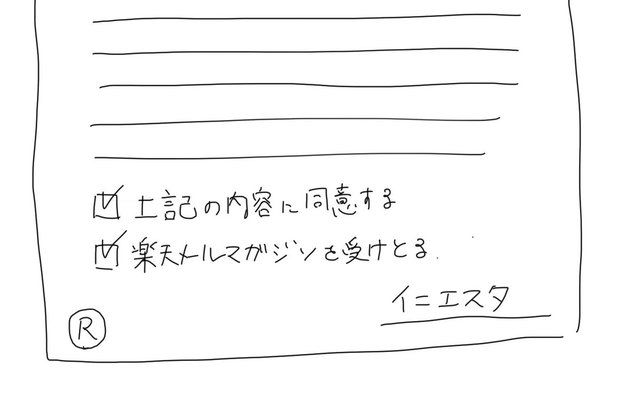 上記の内容に同意する
楽天メールマガジンを受けとる
イニエスタ
R